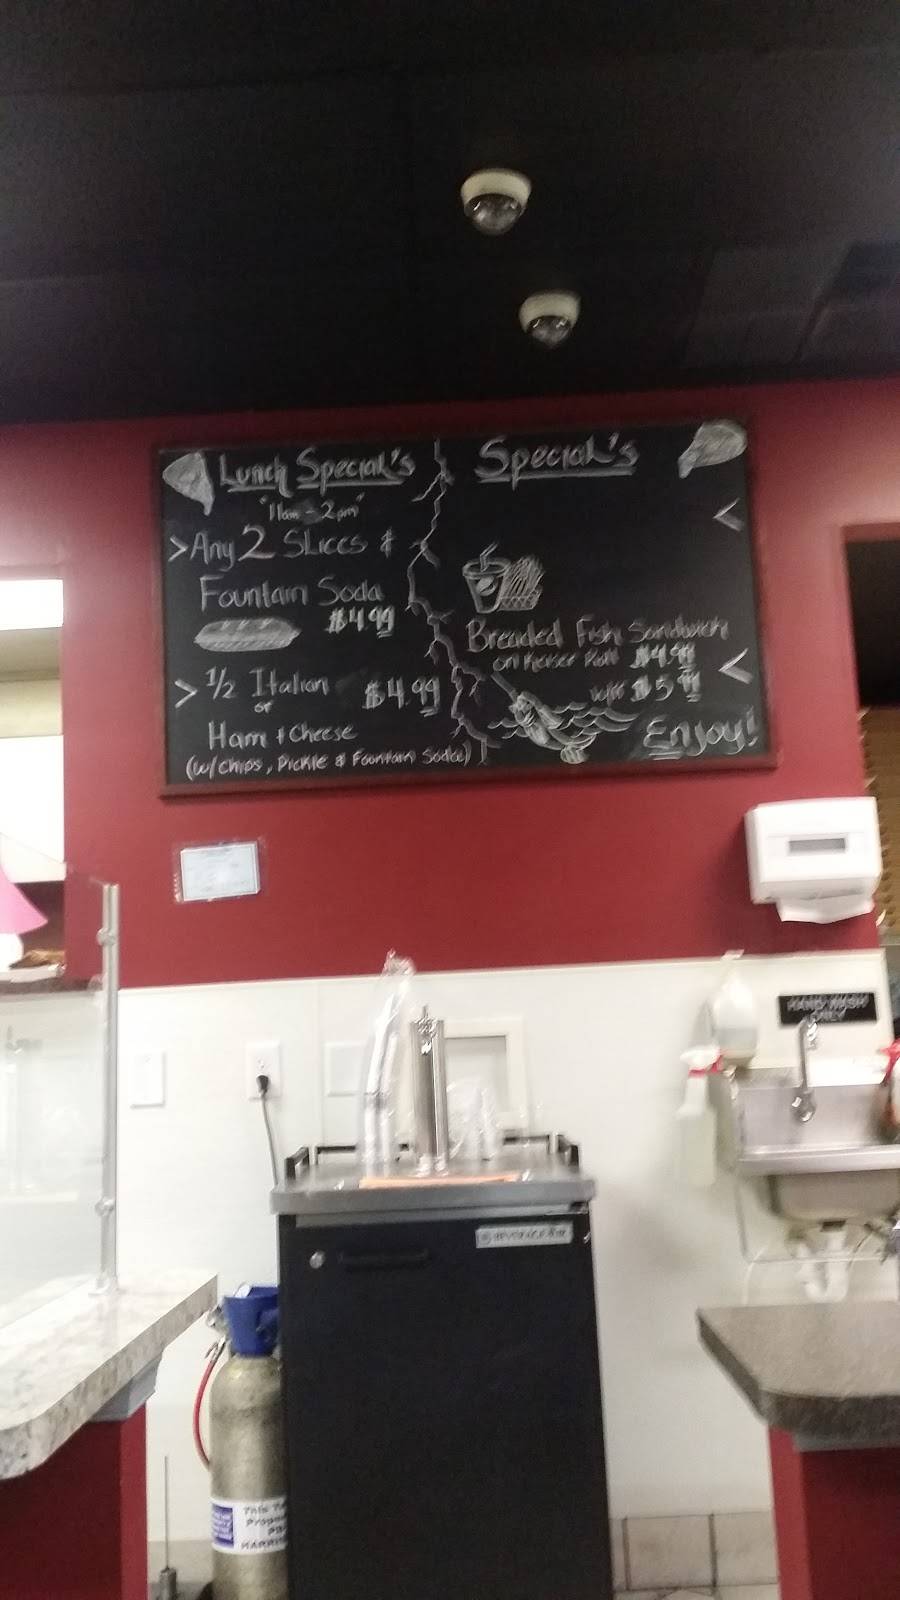 Lunch Special's
"11am - 2pm"
>Any 2 Slices &
Fountain Soda
$4.99
> 1/2 Italian $4.99
or
Ham & Cheese
(w/chips, Pickle & Fountain Soda)
Special's
<
Breaded Fish Sandwich
on Keiser Roll $4.99 <
w/ff $5.99
Enjoy!
HAND WASH
ONLY
This